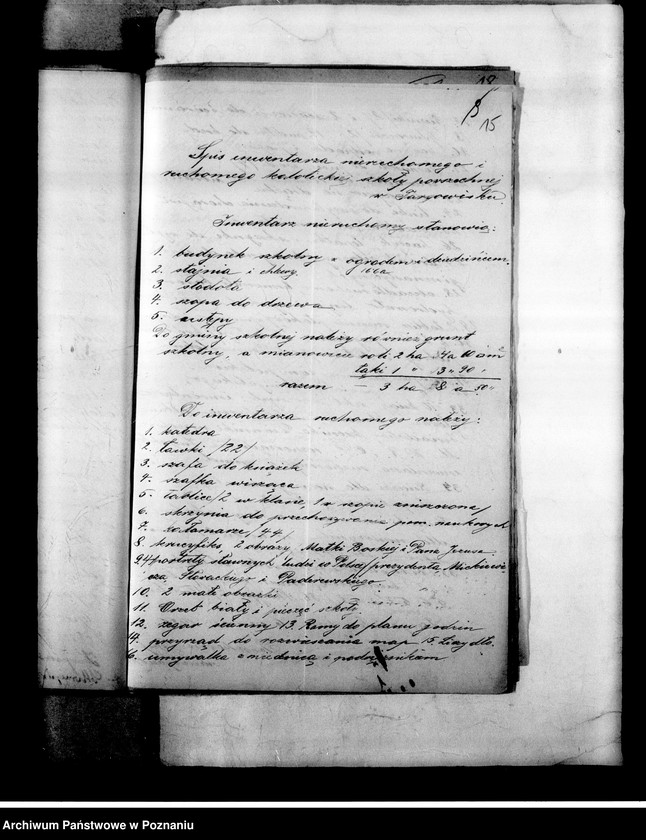 18
15
Spis inwentarza nieruchomego i
ruchomego katolickiej szkoły powszechnej
w Targowisku.
Inwentarz nieruchomy stanowią:
1. budynek szkolny z ogrodem i dziedzińcem.
2. stajnia i chlewy.
3. stodoła
4. szopa do drzewa
5. ustępy
Do gminy szkolnej należy również grunt
szkolny, a mianowicie roli 2 ha 4 a 60 m²
łąki 1 " 3 " 90 "
razem — 3 ha 8 a 50 "
Do inwentarza ruchomego należy:
1. katedra
2. ławki /22/
3. szafa do książek
4. szafka wisząca
5. tablice /2 w klasie, 1 w szopie zniszczona/
6. skrzynia do przechowywania pom. naukowych
7. /44/
8. krucyfiks, 2 obrazy, Matki Boskiej i Pana Jezusa.
9. 4 /portrety sławnych ludzi w Polsce/ prezydenta, Mickiewi-
cza, Pierackiego i Paderewskiego.
10. 2 małe obrazki
11. Orzeł biały i pieczęć szkoły.
12. zegar ścienny 13. Ramy do planu godzin
14. przyrząd do zawieszania map 15. Liczydło.
16. umywalka z miednicą i podstawnikiem
Archiwum Państwowe w Poznaniu